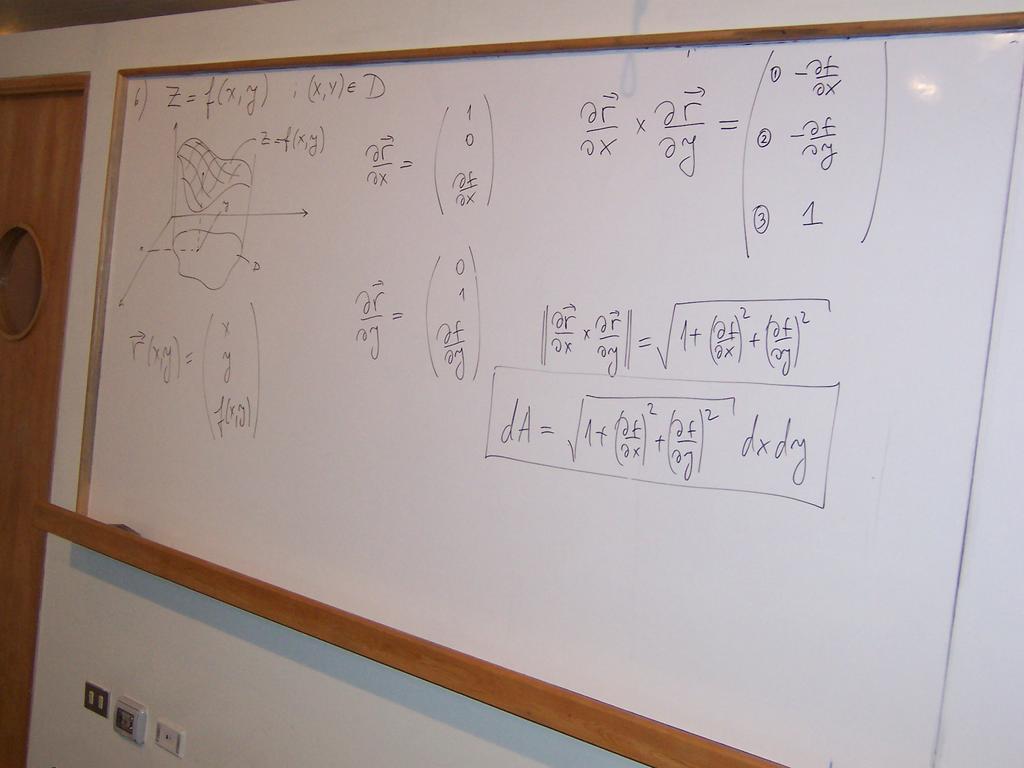 b) z = f(x,y) ; (x,y) ∈ D
z = f(x,y)
D
r⃗(x,y) = (x
y
f(x,y))
∂r⃗/∂x = (1
0
∂f/∂x)
∂r⃗/∂y = (0
1
∂f/∂y)
∂r⃗/∂x × ∂r⃗/∂y = (① -∂f/∂x
② -∂f/∂y
③ 1)
‖∂r⃗/∂x × ∂r⃗/∂y‖ = √(1+(∂f/∂x)²+(∂f/∂y)²)
dA = √(1+(∂f/∂x)²+(∂f/∂y)²) dxdy